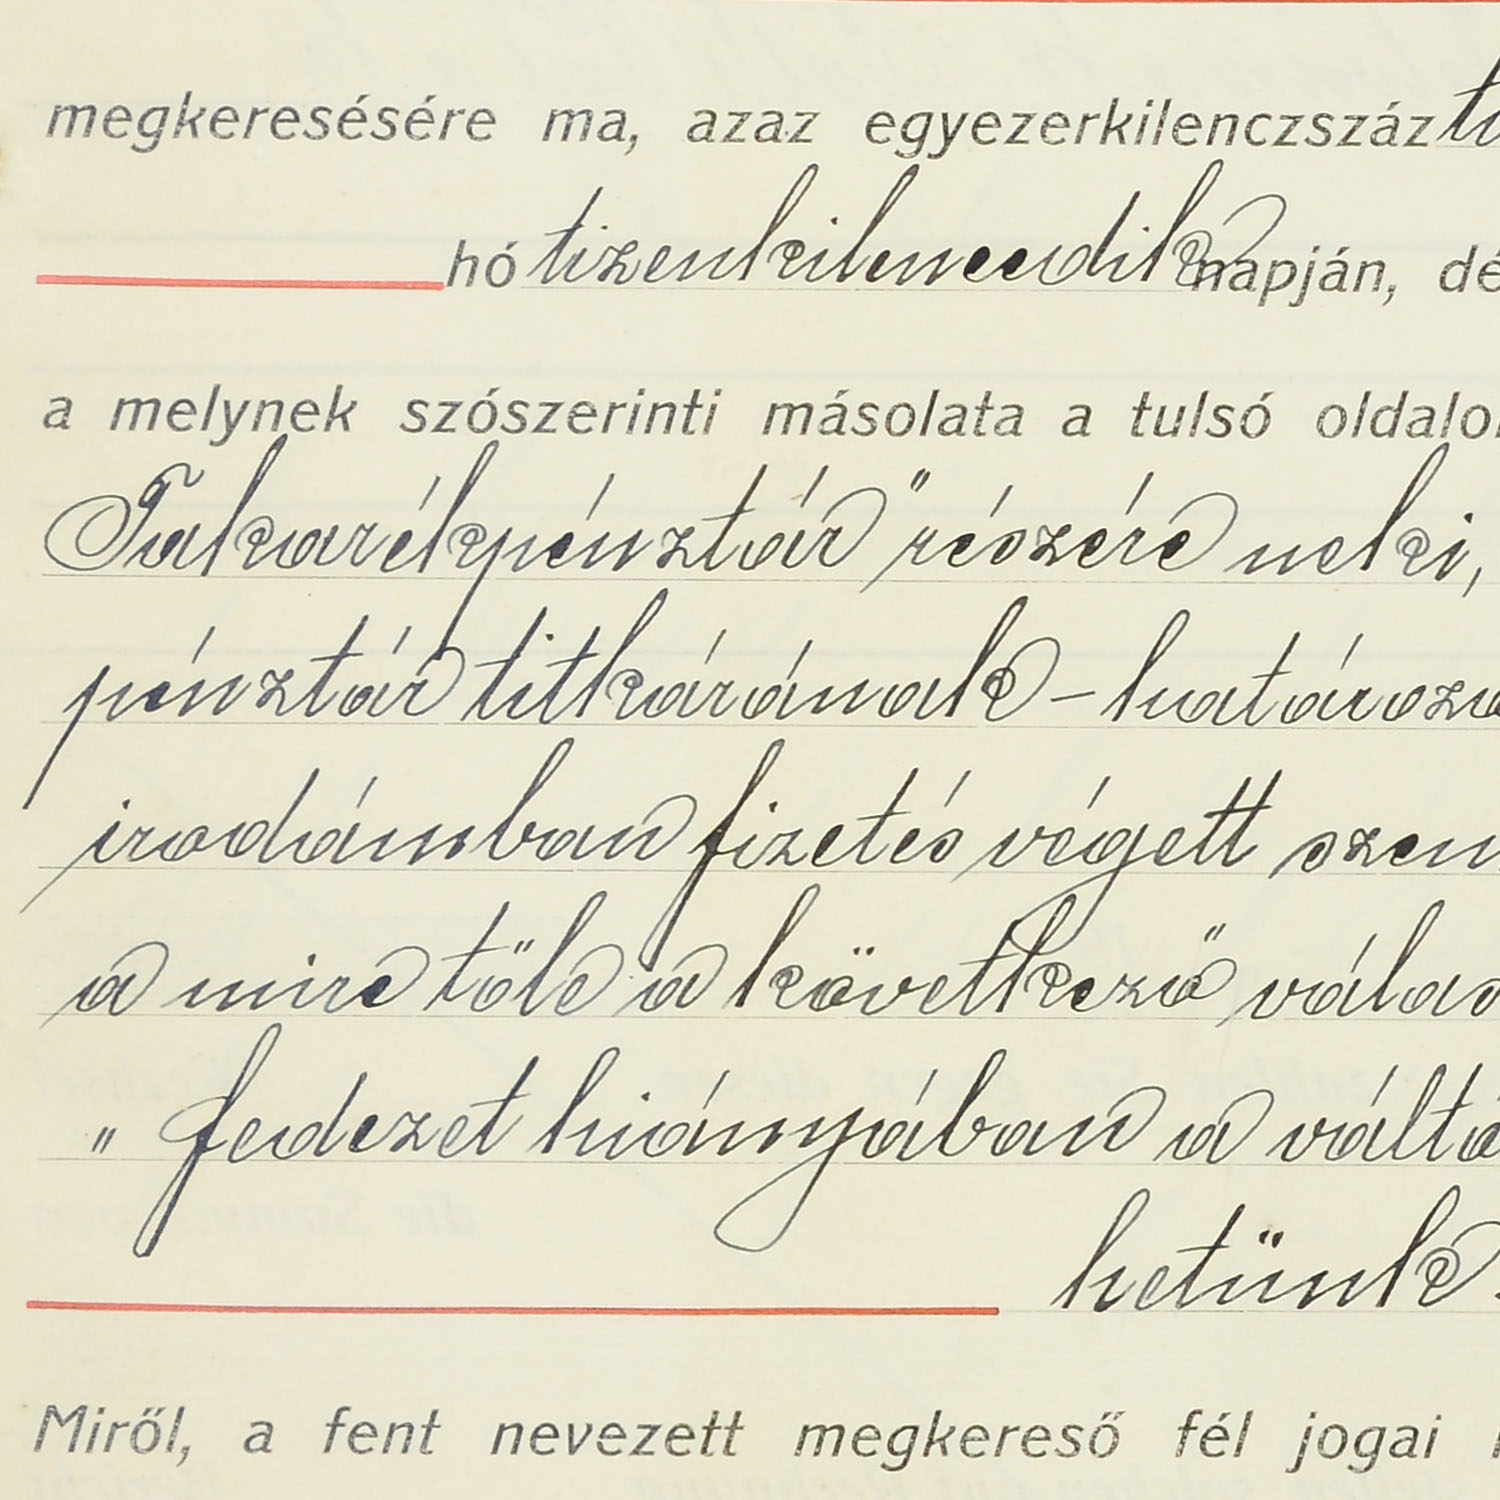 megkeresésére ma, azaz egyezerkilenczszáz
hó tizenkilencedik napján, dé
a melynek szószerinti másolata a tulsó oldalo
Takarékpénztár" részére neki,
pénztár titkárának - határoza
irodámban fizetés végett szem
a mire tőle a következő válas
" fedezet hiányában a váltó
hetünk.
Miről, a fent nevezett megkereső fél jogai